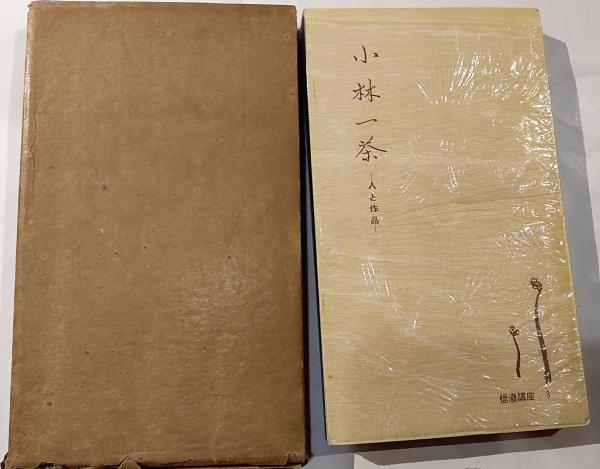 小林一茶
—人と作品—
信濃講座 3